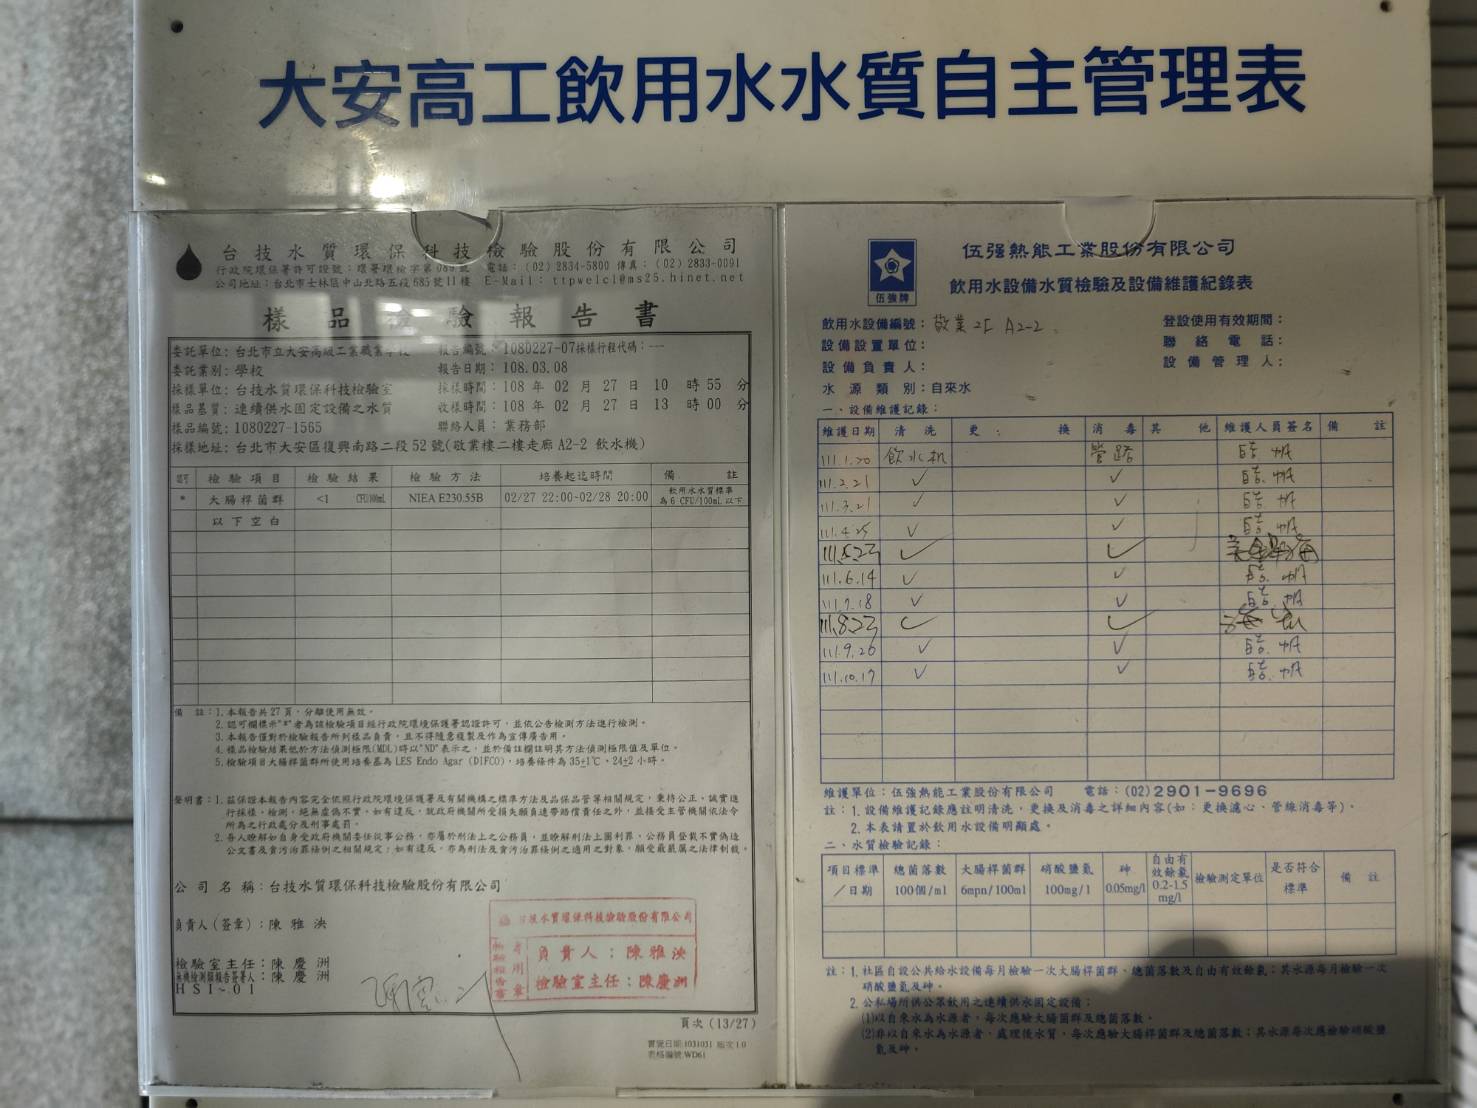 大安高工飲用水水質自主管理表
台技水質環保科技檢驗股份有限公司
行政院環保署許可證號：環署環檢字第089號 電話：(02) 2834-5800 傳真：(02) 2833-0091
公司地址：台北市士林區中山北路五段685號11樓 E-Mail：ttpwelcl@ms25.hinet.net
樣品檢驗報告書
委託單位：台北市立大安高級工業職業學校 報告編號：1080227-07採樣行程代碼：---
委託業別：學校 報告日期：108.03.08
採樣單位：台技水質環保科技檢驗室 採樣時間：108 年 02 月 27 日 10 時 55 分
樣品基質：連續供水固定設備之水質 收樣時間：108 年 02 月 27 日 13 時 00 分
樣品編號：1080227-1565 聯絡人員：業務部
採樣地址：台北市大安區復興南路二段52號(敬業樓二樓走廊 A2-2 飲水機)
認可 檢驗項目 檢驗結果 檢驗方法 培養起迄時間 備註
* 大腸桿菌群 <1 CFU/100mL NIEA E230.55B 02/27 22:00~02/28 20:00 飲用水水質標準為6 CFU/100mL以下
以下空白
備 註：1.本報告共27頁，分離使用無效。
2.認可欄標示"*"者為該檢驗項目經行政院環境保護署認證許可，並依公告檢測方法進行檢測。
3.本報告僅對於檢驗報告所列樣品負責，且不得隨意複製及作為宣傳廣告用。
4.樣品檢驗結果低於方法偵測極限(MDL)時以"ND"表示之，並於備註欄註明其方法偵測極限值及單位。
5.檢驗項目大腸桿菌群所使用培養基為 LES Endo Agar (DIFCO)，培養條件為 35±1℃、24±2 小時。
聲明書：1.茲保證本報告內容完全依照行政院環境保護署及有關機構之標準方法及品保品管等相關規定，秉持公正、誠實進
行採樣、檢測，絕無虛偽不實，如有違反，就政府機關所受損失願負連帶賠償責任之外，並接受主管機關依法令
所為之行政處分及刑事處罰。
2.吾人瞭解如自身受政府機關委任從事公務，亦屬於刑法上之公務員，並瞭解刑法上圖利罪、公務員登載不實偽造
公文書及貪污治罪條例之相關規定；如有違反，亦為刑法及貪污治罪條例之適用之對象，願受最嚴厲之法律制裁。
公司名稱：台技水質環保科技檢驗股份有限公司
負責人(簽章)：陳雅泱
檢驗室主任：陳慶洲
無機檢測類報告簽署人：陳慶洲
HSI-01
台技水質環保科技檢驗股份有限公司
檢驗報告書專用章
負責人：陳雅泱
檢驗室主任：陳慶洲
頁次 (13/27)
實施日期:1031031 版次1.0
表格編號:WD61
伍強牌
伍强熱能工業股份有限公司
飲用水設備水質檢驗及設備維護紀錄表
飲用水設備編號：敬業2F A2-2 登設使用有效期間：
設備設置單位： 聯絡電話：
設備負責人： 設備管理人：
水源類別：自來水
一、設備維護記錄：
維護日期 清洗 更：換 消毒 其他 維護人員簽名 備註
111.1.20 飲水机 管路
111.2.21 ✓ ✓
111.3.21 ✓ ✓
111.4.25 ✓ ✓
111.5.23 ✓ ✓
111.6.14 ✓ ✓
111.7.18 ✓ ✓
111.8.23 ✓ ✓
111.9.26 ✓ ✓
111.10.17 ✓ ✓
維護單位：伍强熱能工業股份有限公司 電話：(02)2901-9696
註：1.設備維護紀錄應註明清洗、更換及消毒之詳細內容(如：更換濾心、管線消毒等)。
2.本表請置於飲用水設備明顯處。
二、水質檢驗記錄：
項目標準／日期 總菌落數 100個/ml 大腸桿菌群 6mpn/100ml 硝酸鹽氮 100mg/l 砷 0.05mg/l 自由有效餘氯 0.2-1.5 mg/l 檢驗測定單位 是否符合標準 備註
註：1.社區自設公共給水設備每月檢驗一次大腸桿菌群、總菌落數及自由有效餘氯；其水源每月檢驗一次
硝酸鹽氮及砷。
2.公私場所供公眾飲用之連續供水固定設備：
(1)以自來水為水源者，每次應驗大腸菌群及總菌落數。
(2)非以自來水為水源者，處理後水質，每次應驗大腸桿菌群及總菌落數；其水源每次應檢驗硝酸鹽
氮及砷。